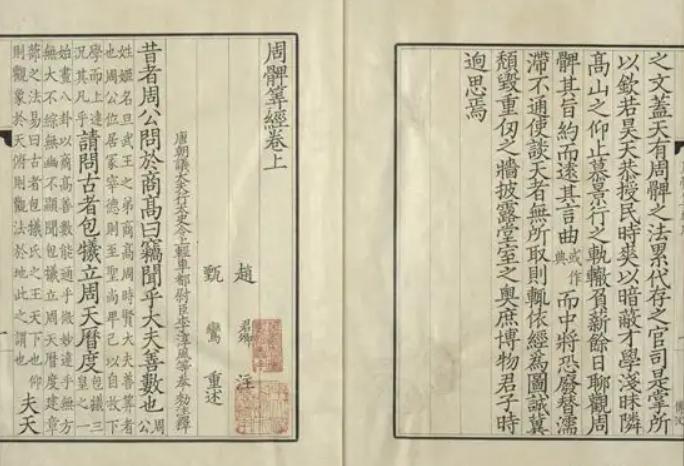 之文蓋天有周髀之法累代存之官司是掌所
以欽若昊天恭授民時爽以暗蔽才學淺昧隣
高山之仰止慕景行之軌轍負薪餘日聊觀周
髀其旨約而遠其言曲或作典而中將恐廢替濡
滯不通使談天者無所取則輒依經為圖誠冀
頹毀重仞之牆披露堂室之奥庶博物君子時
迥思焉
周髀筭經卷上
趙 君卿 注
甄 鸞 重述
唐朝議大夫行太史令上輕車都尉臣李淳風等奉 勑注釋
昔者周公問於商高曰竊聞乎大夫善數也周公
姓姬名旦武王之弟商高周時賢大夫善筭者
也周公位居冢宰德則至聖尚卑己以自牧下
學而上達況其凡乎請問古者包犧立周天曆度包犧三皇之一
始畫八卦以商高善數能通乎微妙達乎無方
無大不綜無幽不顯聞包犧立周天曆度建章
蔀之法易曰古者包犧氏之王天下也仰
則觀象於天俯則觀法於地此之謂也夫天